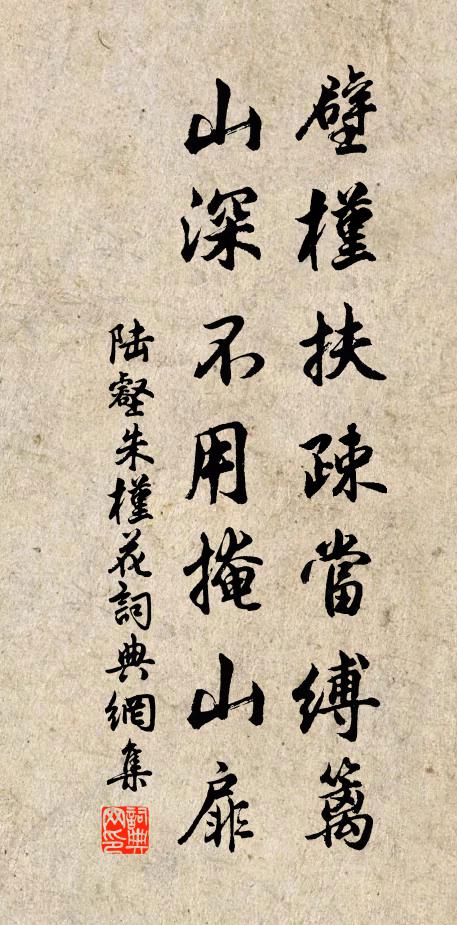 壁槿扶疎當縛篱
山深不用掩山扉
陆壑朱槿花詞典網集
詞典网印